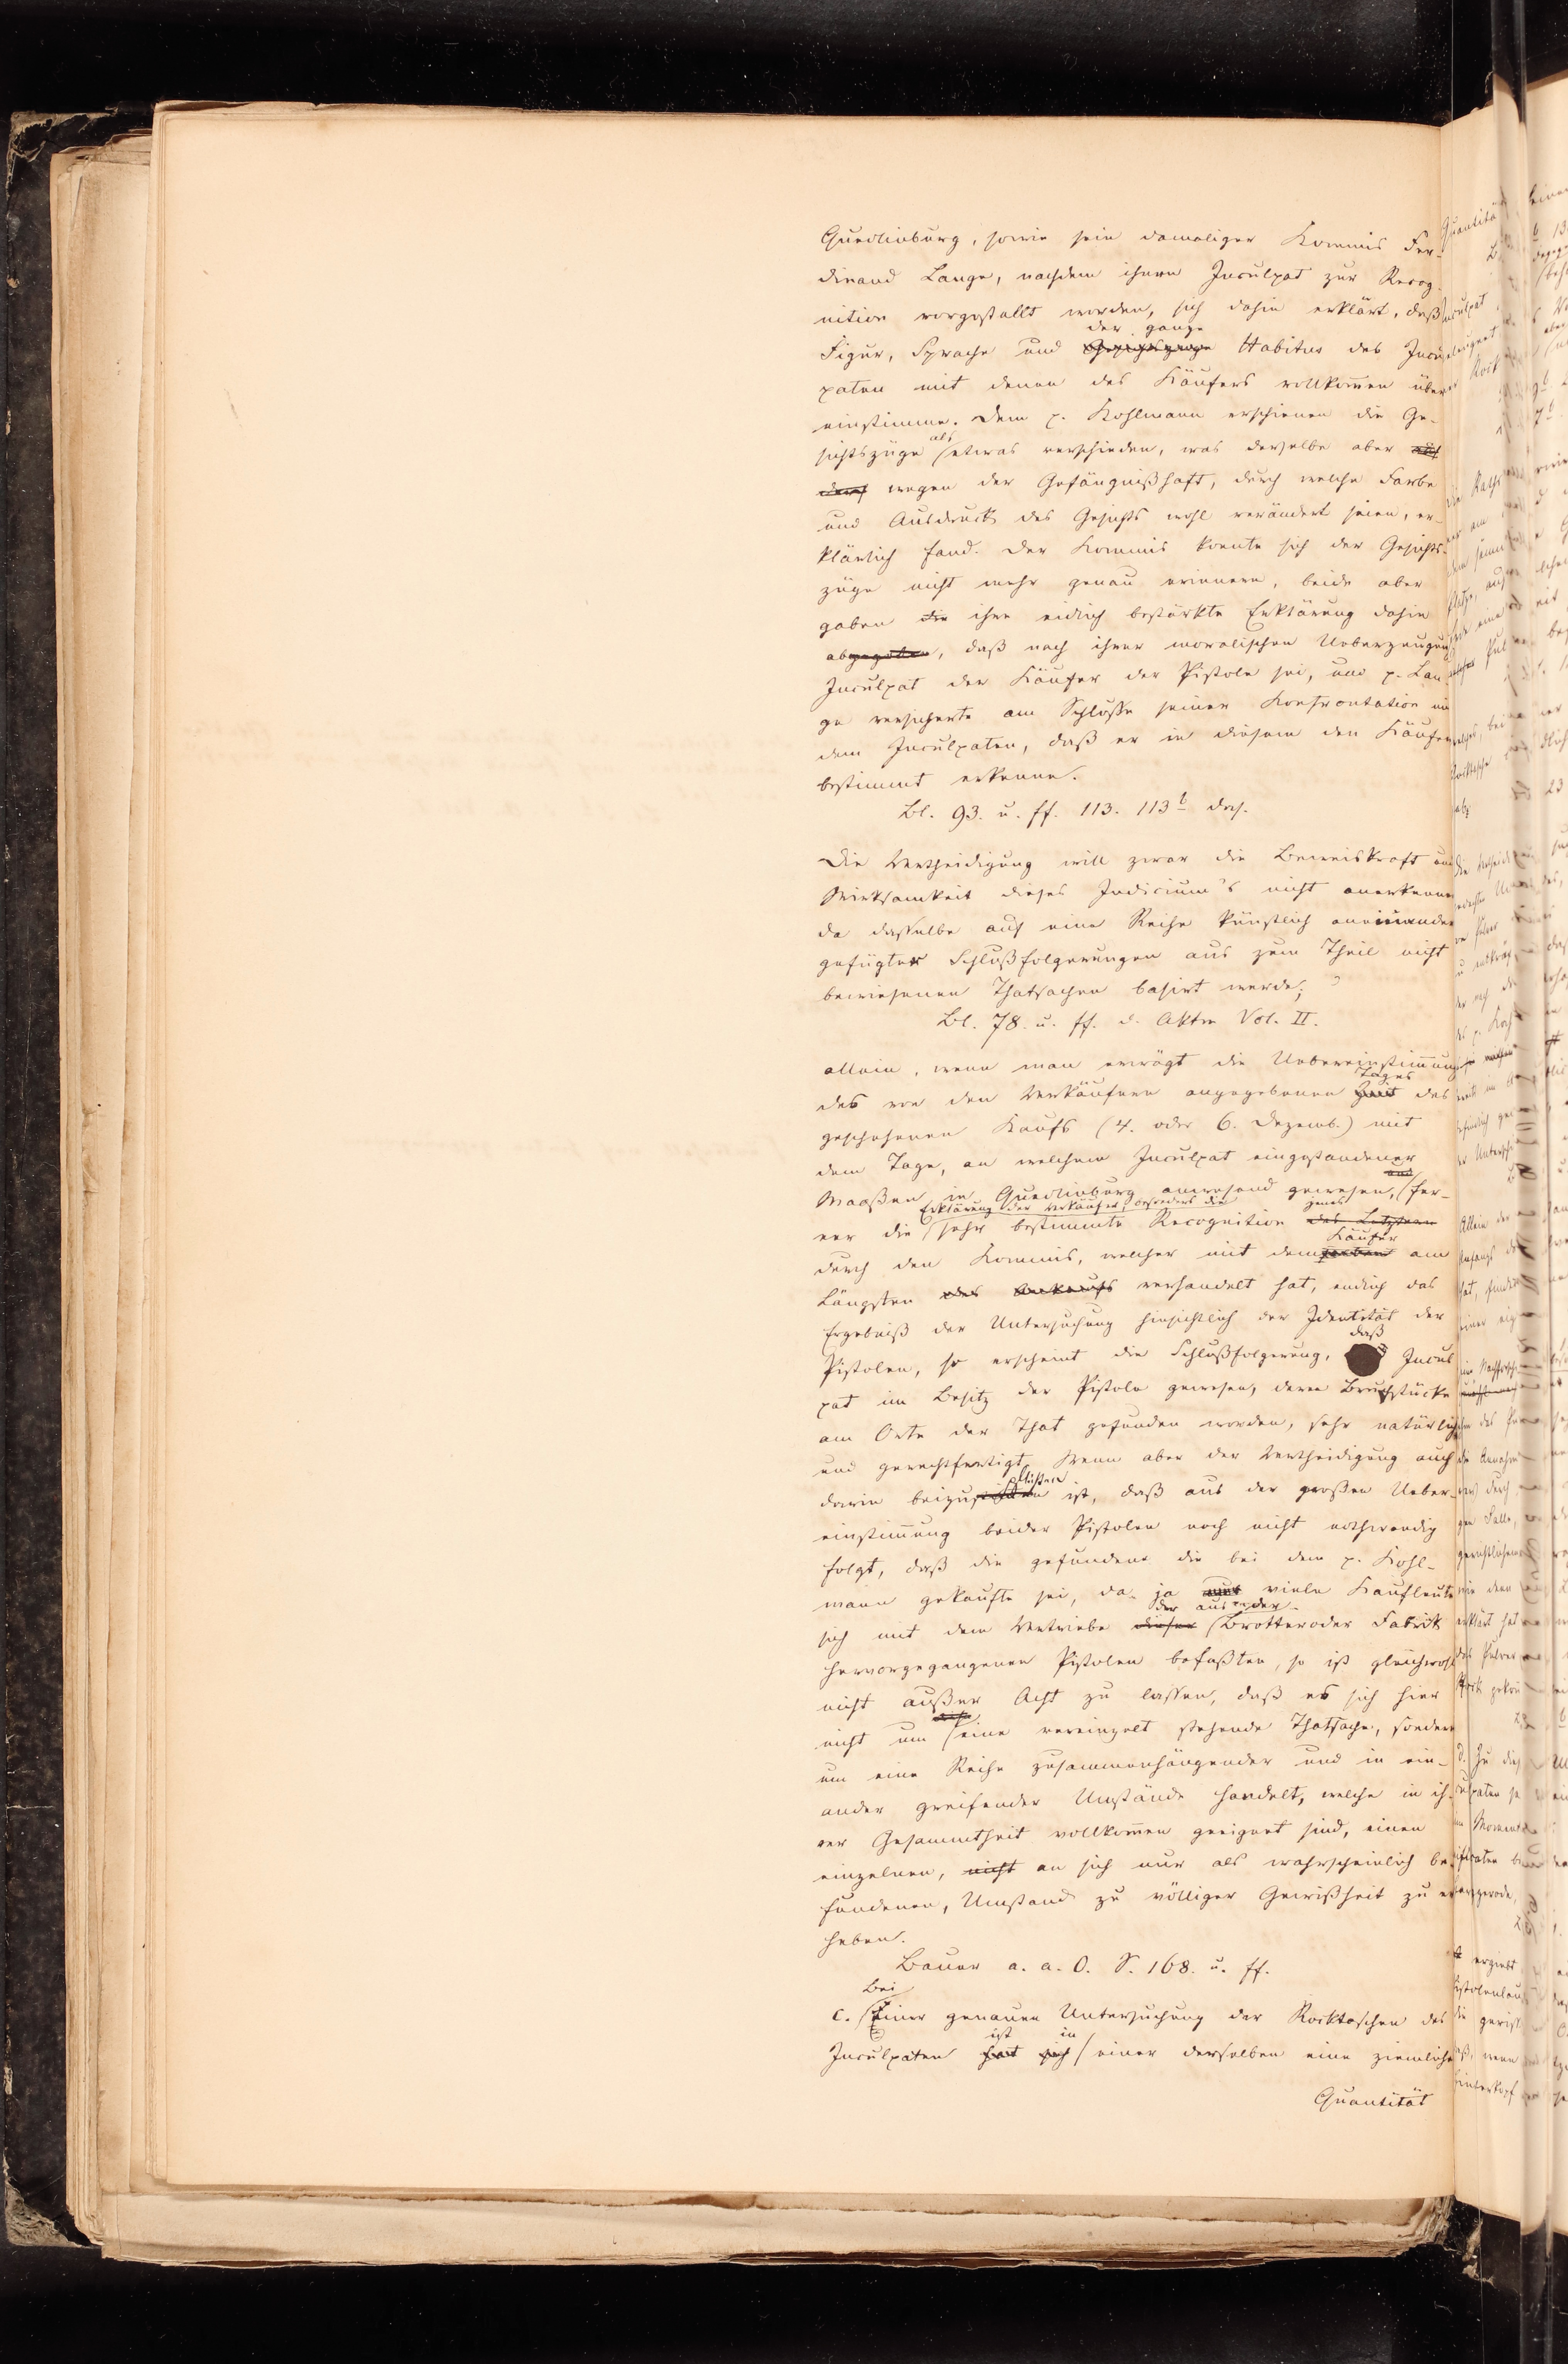 Quedlinburg, sowie sein damaliger Kommis Fer-
dinand Lange, nachdem ihnen Inculpat zur Recog-
nition vorgestellt worden, sich dahin erklärt, daß
der ganze
Figur, Sprache und Gesichtszüge Habitus des Incul-
paten mit denen des Käufers vollkom̄en über
einstimme. Dem p. Kohlmann erschienen die Ge-
als
sichtszüge etwas verschieden, was derselbe aber auch
wegen der Gefängnißhaft, durch welche Farbe
und Ausdruck des Gesichts wohl verändert seien, er-
klärlich fand. Der Kommis konnte sich der Gesichts-
züge nicht mehr genau erinnern, beide aber
gaben die ihre eidlich bestärkte Erklärung dahin
abgegeben, daß nach ihrer moralischen Ueberzeugung
Inculpat der Käufer der Pistole sei, und p. Lan-
ge versicherte am Schlusse seiner Konfrontation mi
dem Inculpaten, daß er in diesem den Käufer
bestimmt erkenne.
Bl. 93. u. ff. 113. 113b das.
Die Vertheidigung will zwar die Beweiskraft und
Wirksamkeit dieses Indicium's nicht anerkennen
da dasselbe auf eine Reihe künstlich aneinander
gefügter Schlußfolgerungen aus zum Theil nicht
bewiesenen Thatsachen basirt werde;
Bl. 78. u. ff. d. Akten Vol. II.
allein, wenn man erwägt die Uebereinstim̄ung
Tages
des von den Verkäufern angegebenen Zeit des
geschehenen Kaufs (4. oder 6. Dezemb.) mit
dem Tage, an welchem Inculpat eingestandener
und
Maaßen in Quedlinburg anwesend gewesen, fer-
Erklärung der Verkäufer, besonders die jenes
ner die sehr bestimmte Recognition des Letztern
Käufer
durch den Kommis, welcher mit demselben am
Längsten des Ankaufs verhandelt hat, endlich das
Ergebniß der Untersuchung hinsichtlich der Identität der
daß
Pistolen, so erscheint die Schlußfolgerung, Incul
pat im Besitz der Pistole gewesen, deren Bruchstücke
am Orte der That gefunden worden, sehr natürlich
und gerechtfertigt. Wenn aber der Vertheidigung auch
pflichten
darin beizu ist, daß aus der großen Ueber-
einstim̄ung beider Pistolen noch nicht nothwendig
folgt, daß die gefundene die bei dem p. Kohl-
mann gekaufte sei, da ja nur viele Kaufleute
der aus der
sich mit dem Vertriebe dieser Brotteroder Fabrik
hervorgegangenen Pistolen befaßten, so ist gleichwohl
nicht außer Acht zu lassen, daß es sich hier
nicht um eine vereinzelt stehende Thatsache, sondern
um eine Reihe zusammenhängender und in ein-
ander greifender Umstände handelt, welche in ih-
rer Gesammtheit vollkom̄en geeignet sind, einen
einzelnen, nicht an sich nur als wahrscheinlich be-
fundenen, Umstand zu völliger Gewißheit zu er
heben.
Bauer a. a. O. S. 168. u. ff.
Bei
c. einer genauen Untersuchung der Rocktaschen des
ist in
Inculpaten hat sich einer derselben eine ziemliche
Quantität